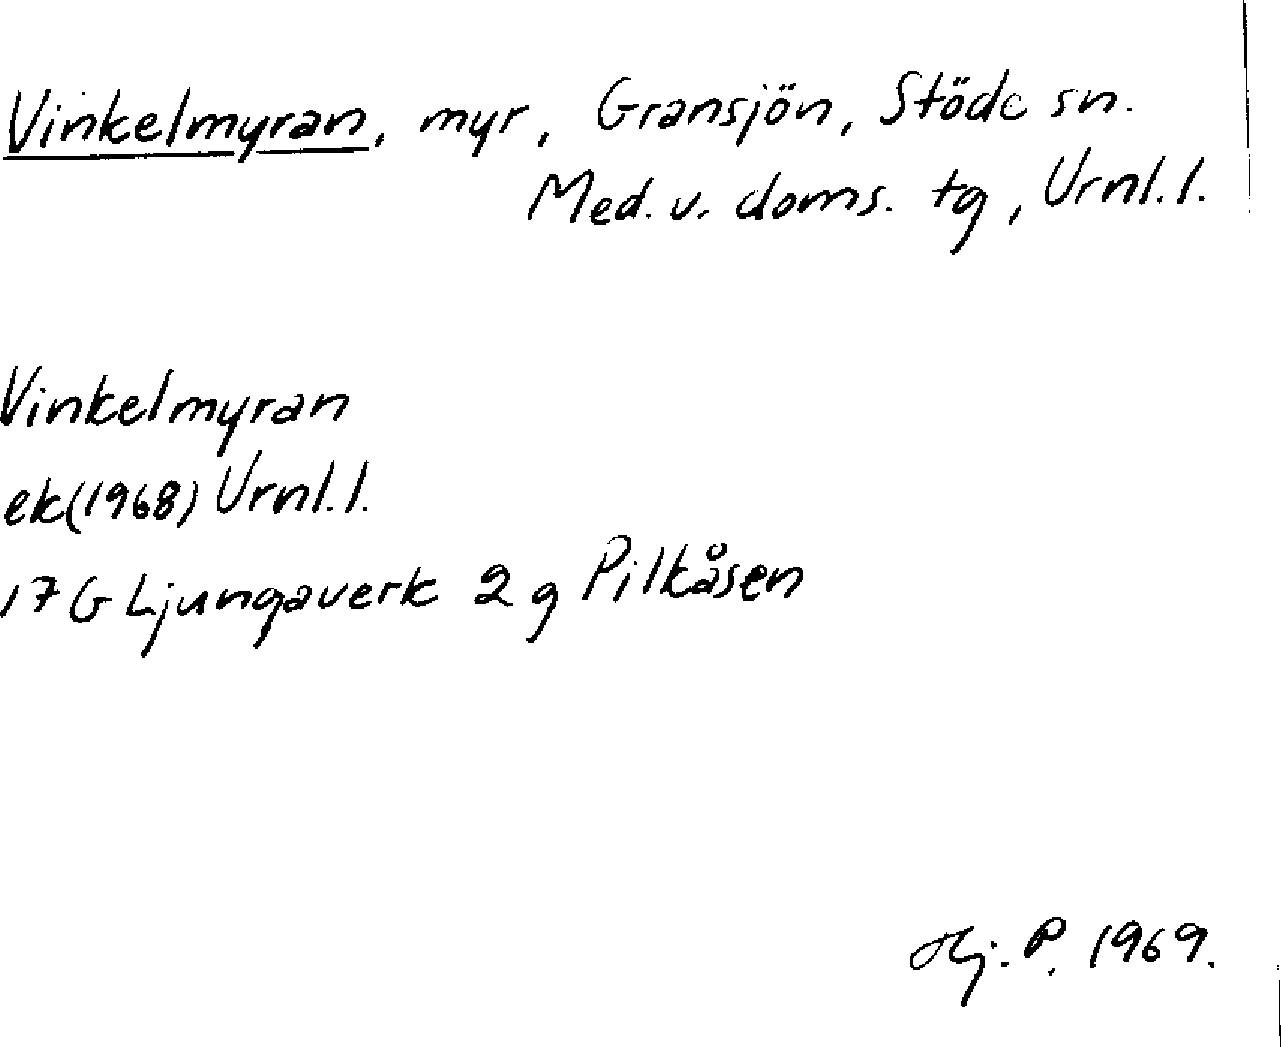 Vinkelmyran, myr, Gransjön, Stöde sn.
Med. v. doms. tg, Urnl. l.
Vinkelmyran
ek(1968) Urnl. l.
17 G Ljungaverk 2 g Pilkåsen
Hj. P. 1969.